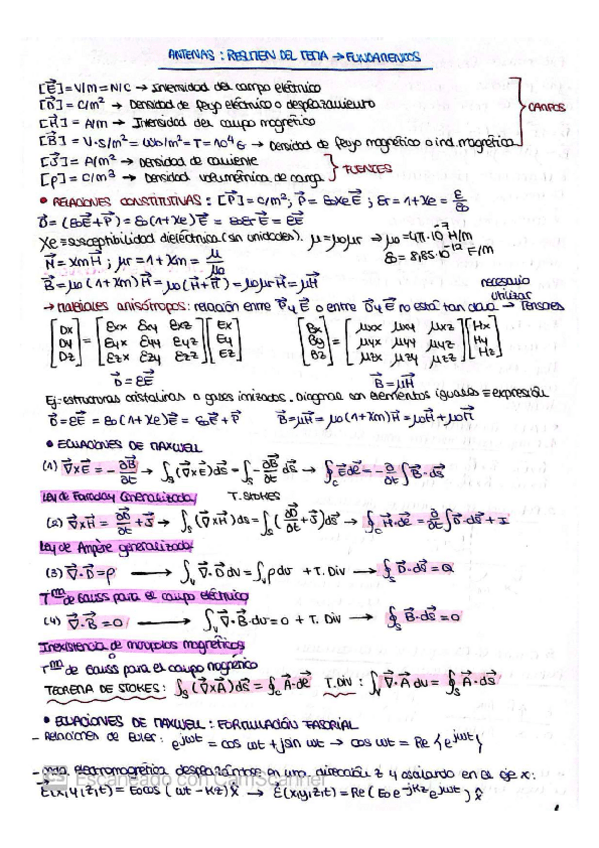 ANTENAS: RESUMEN DEL TEMA → FUNDAMENTOS
[E⃗] = V/m = N/C → Intensidad del campo eléctrico
[D⃗] = C/m² → Densidad de flujo eléctrico o desplazamiento
[H⃗] = A/m → Intensidad del campo magnético
[B⃗] = V·S/m² = Wb/m² = T = 10⁴ G → Densidad de flujo magnético o ind. magnética
CAMPOS
[J⃗] = A/m² → Densidad de corriente
[ρ] = C/m³ → Densidad volumétrica de carga
FUENTES
• RELACIONES CONSTITUTIVAS: [P⃗] = C/m²; P⃗ = ε₀χe E⃗; εr = 1+χe = ε/ε₀
D⃗ = (ε₀E⃗+P⃗) = ε₀(1+χe)E⃗ = ε₀εrE⃗ = εE⃗
χe ≡ susceptibilidad dieléctrica (sin unidades). μ = μ₀μr ⇒ μ₀ = 4π·10⁻⁷ H/m
ε₀ = 8,85·10⁻¹² F/m
M⃗ = χm H⃗; μr = 1+χm = μ/μ₀
B⃗ = μ₀(1+χm)H⃗ = μ₀(H⃗+M⃗) = μ₀μrH⃗ = μH⃗
→ Materiales anisótropos: relación entre P⃗ y E⃗ o entre D⃗ y E⃗ no está tan clara → necesario utilizar TENSORES
[Dx Dy Dz] = [εxx εxy εxz εyx εyy εyz εzx εzy εzz] [Ex Ey Ez] [Bx By Bz] = [μxx μxy μxz μyx μyy μyz μzx μzy μzz] [Hx Hy Hz]
D⃗ = εE⃗ B⃗ = μH⃗
Ej: estructuras cristalinas o gases ionizados. Diagonal con elementos iguales ≡ expresión
D⃗ = εE⃗ = ε₀(1+χe)E⃗ = ε₀E⃗+P⃗ B⃗ = μH⃗ = μ₀(1+χm)H⃗ = μ₀H⃗+μ₀M⃗
• ECUACIONES DE MAXWELL
(1) ∇⃗×E⃗ = -∂B⃗/∂t → ∫ₛ(∇⃗×E⃗)dS⃗ = ∫ₛ -∂B⃗/∂t dS⃗ → ∮c E⃗·dℓ⃗ = -∂/∂t ∫B⃗·dS⃗
Ley de Faraday Generalizada T. STOKES
(2) ∇⃗×H⃗ = ∂D⃗/∂t + J⃗ → ∫ₛ(∇⃗×H⃗)ds = ∫ₛ(∂D⃗/∂t + J⃗)dS⃗ → ∮c H⃗·dℓ = ∂/∂t ∫D⃗·dS⃗ + I
Ley de Ampère generalizada
(3) ∇⃗·D⃗ = ρ → ∫ᵥ ∇⃗·D⃗ dv = ∫ᵥ ρ dv + T. Div → ∮ₛ D⃗·dS⃗ = Q
Tᵐᵃ de Gauss para el campo eléctrico
(4) ∇⃗·B⃗ = 0 → ∫ᵥ ∇⃗·B⃗·dv = 0 + T. Div → ∮ₛ B⃗·dS⃗ = 0
Inexistencia de monopolos magnéticos
Tᵐᵃ de Gauss para el campo magnético
TEOREMA DE STOKES: ∫ₛ(∇⃗×A⃗)dS⃗ = ∮c A⃗·dℓ⃗ T. Div: ∫ᵥ ∇⃗·A⃗ dv = ∮ₛ A⃗·dS⃗
• ECUACIONES DE MAXWELL: FORMULACIÓN FASORIAL
- Relaciones de Euler: e^{jωt} = cos ωt + j sin ωt → cos ωt = Re{e^{jωt}}
- onda electromagnética desplazándose en una dirección z y oscilando en el eje x:
E⃗(x,y,z,t) = E₀cos(ωt-kz)x̂ → E⃗(x,y,z,t) = Re(E₀e^{-jkz}e^{jωt})x̂
CS Escaneado con CamScanner